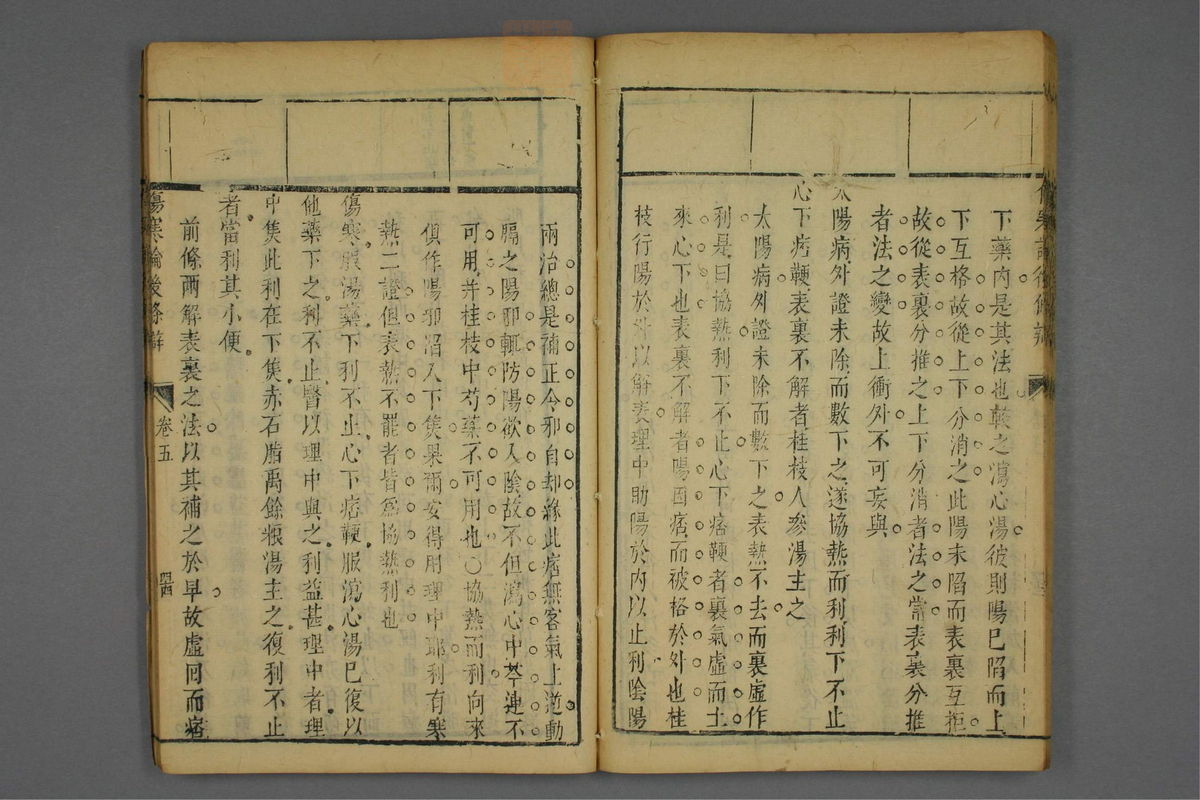 下藥內是其法也較之瀉心湯彼則陽已陷而上
下互格故從上下分消之此陽未陷而表裏互拒
故從表裏分推之上下分消者法之常表裏分推
者法之變故上衝外不可妄與
太陽病外證未除而數下之遂協熱而利利下不止
心下痞鞕表裏不解者桂枝人參湯主之
太陽病外證未除而數下之表熱不去而裏虛作
利是曰協熱利下不止心下痞鞕者裏氣虛而土
來心下也表裏不解者陽因痞而被格於外也桂
枝行陽於外以解表理中助陽於內以止利陰陽
兩治總是補正令邪自却緣此痞無客氣上逆動
膈之陽邪輒防陽欲入陰故不但瀉心中芩連不
可用并桂枝中芍藥不可用也○協熱而利向來
俱作陽邪陷入下焦果爾安得用理中耶利有寒
熱二證但表熱不罷者皆為協熱利也
傷寒服湯藥下利不止心下痞鞕服瀉心湯已復以
他藥下之利不止醫以理中與之利益甚理中者理
中焦此利在下焦赤石脂禹餘糧湯主之復利不止
者當利其小便
前條兩解表裏之法以其補之於早故虛回而痞
傷寒論後條辨
卷五